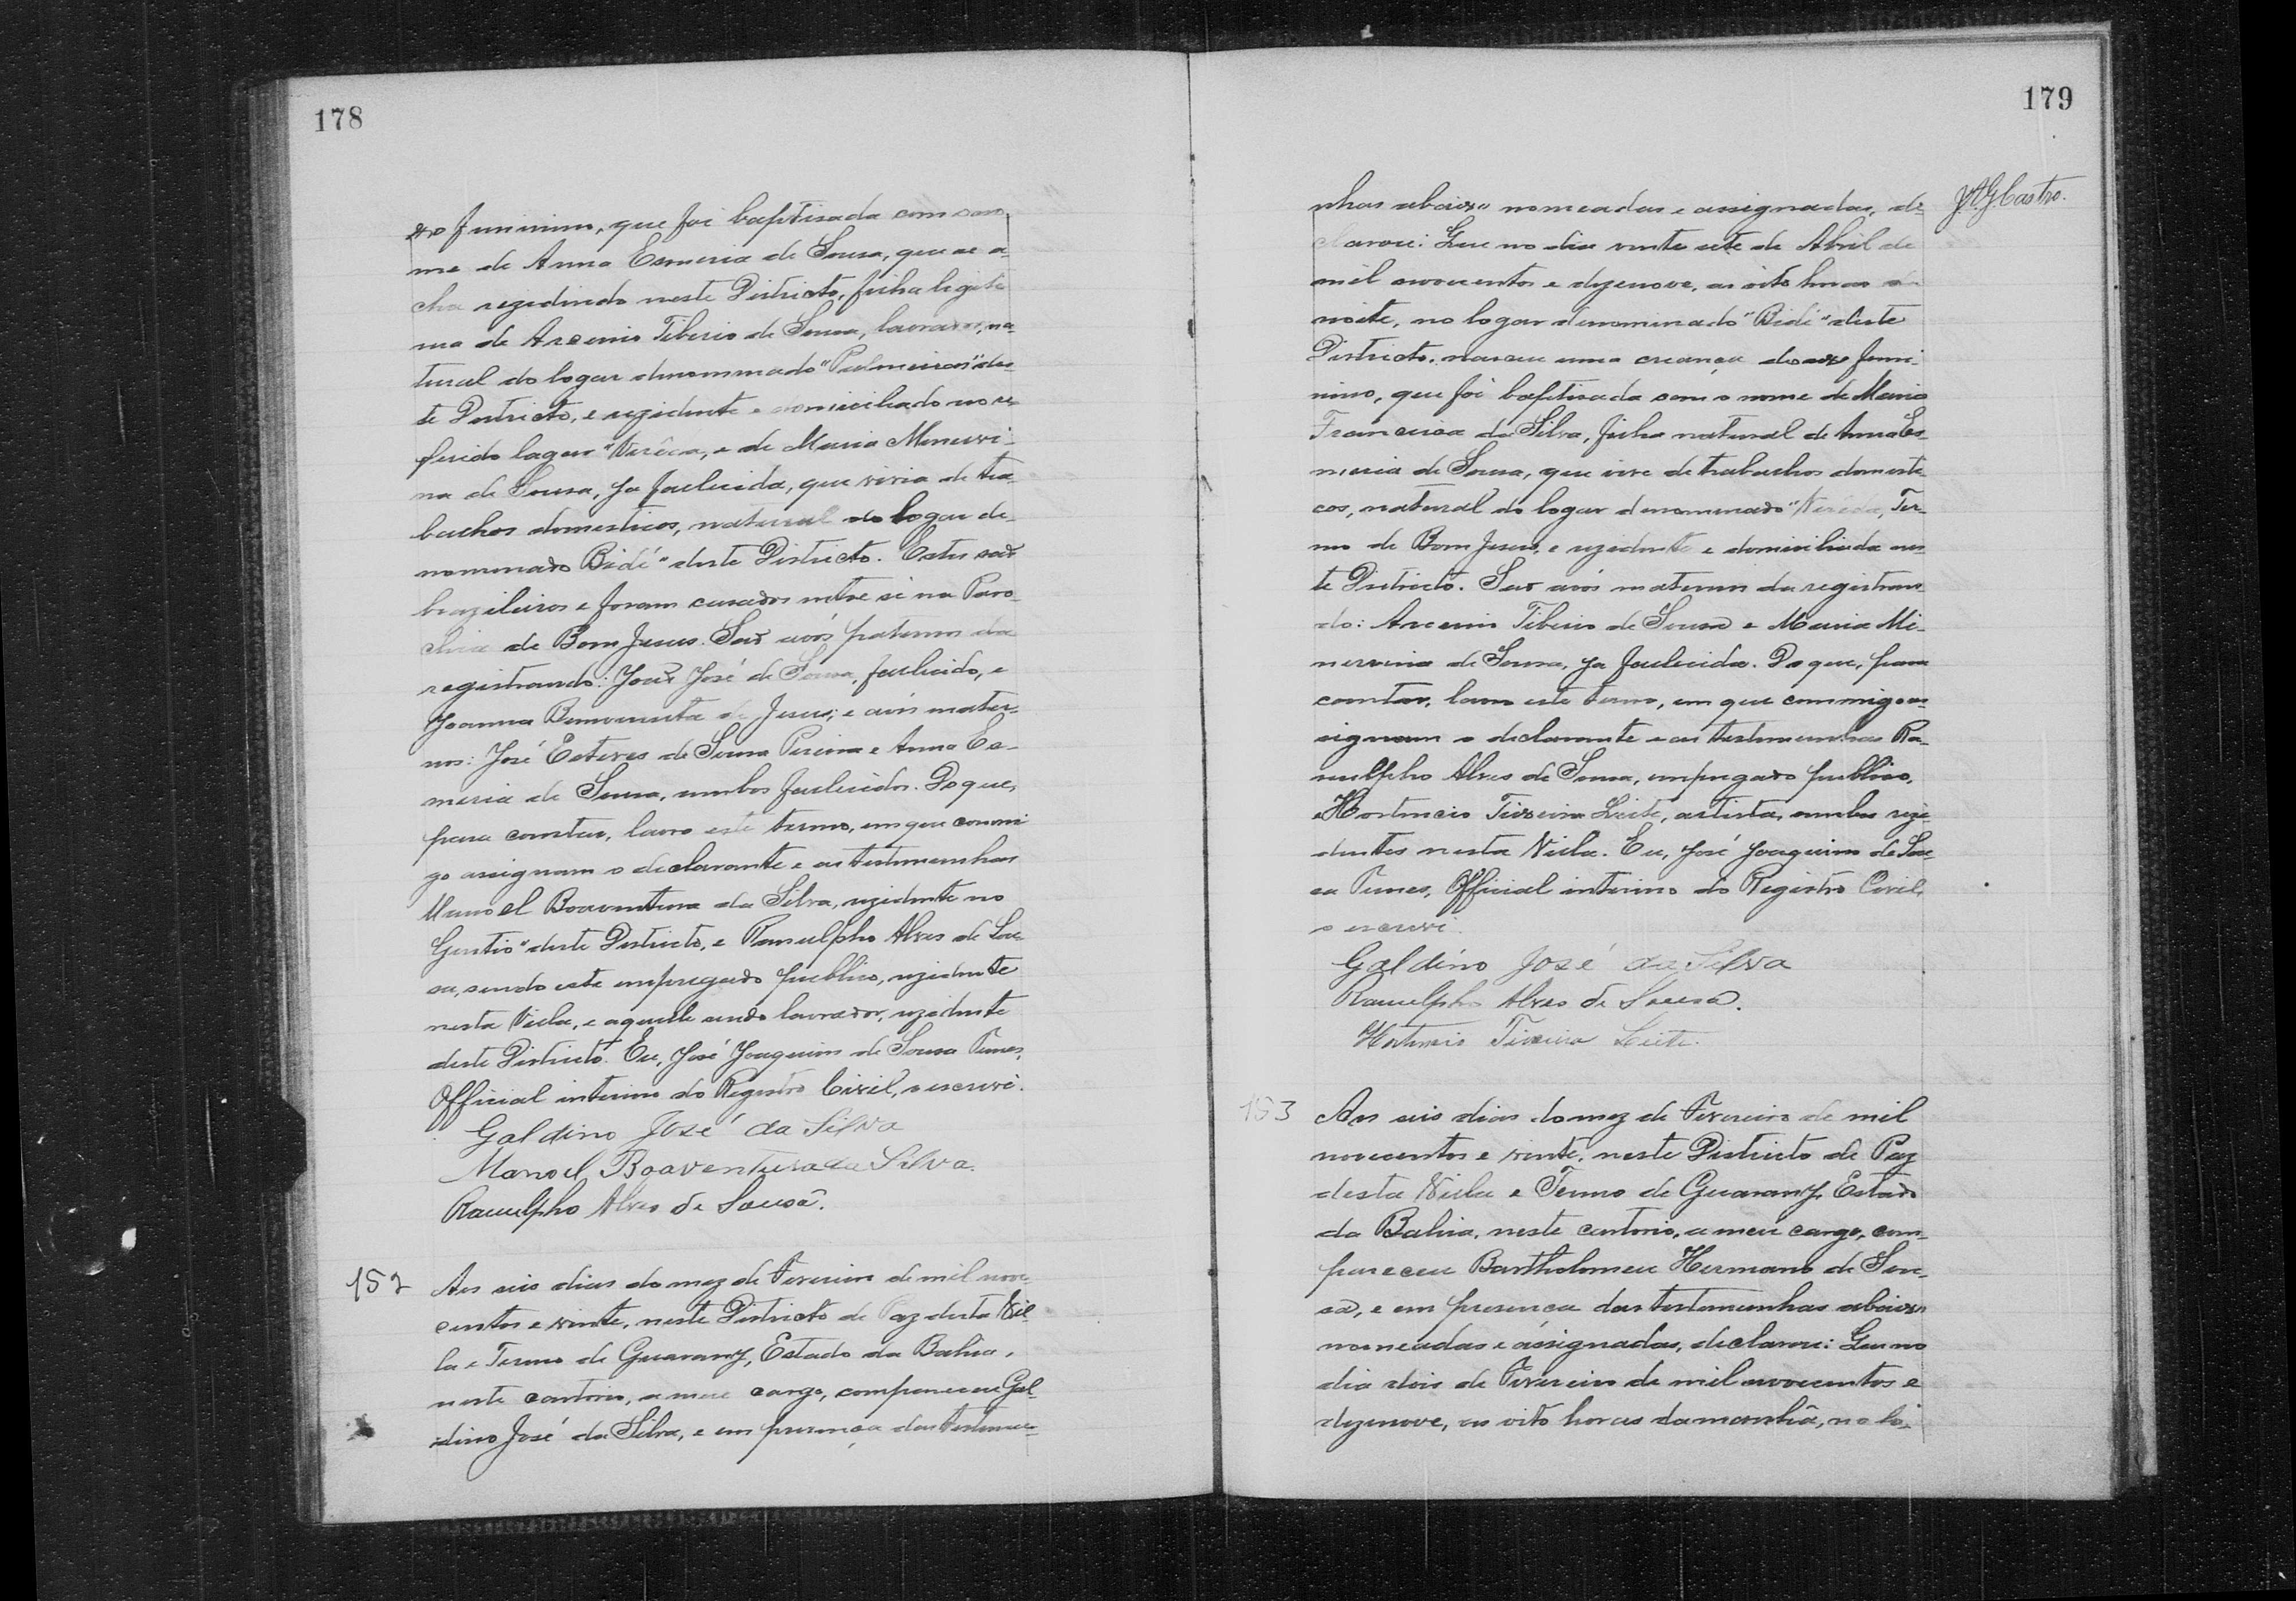 178
xo feminino, que foi baptisada com o no-
me de Anna Esmeria de Sousa, que se a-
cha rezidindo neste Districto, filha legiti-
ma de Arsenio Tiberio de Sousa, lavrador, na-
tural do logar denominado "Palmeiras" des-
te Districto, e rezidente e domiciliado no re-
ferido logar e de Maria Minervi-
na de Sousa, ja fallecida, que vivia de tra-
balhos domesticos, natural do logar de-
nominado Bidé" deste Districto. Estes são
brazileiros e foram casados entre si na Paro-
chia de Bom Jesus. São avós paternos da
registrando: João José de Sousa, fallecido, e
Joanna Bemvenuta de Jesus; e avós mater-
nos: José Esteves de Sousa Pereira e Anna Es-
meria de Sousa, ambos fallecidos. Do que,
para constar, lavro este termo, em que commi
go assignam o declarante e as testemunhas
Manoel Boaventura da Silva, rezidente no
Gentio" deste Districto, e Ranulpho Alves de Sou-
sa, sendo este empregado publico, rezidente
nesta Villa, e aquelle sendo lavrador, rezidente
deste Districto. Eu, José Joaquim de Sousa Nunes,
Official interino do Registro Civil, o escrevi.
Galdino José da Silva
Manoel Boaventura da Silva.
Ranulpho Alves de Sousa.
152 Aos seis dias do mez de Fevereiro de mil nove-
centos e vinte, neste Districto de Paz desta Vil-
la e Termo de Guarany, Estado da Bahia,
neste cartorio, a meu cargo, compareceu Gal-
dino José da Silva, e em presença das testemu-
179
J. A. G. Castro.
nhas abaixo nomeadas e assignadas, de-
clarou: Que no dia vinte sete de Abril de
mil novecentos e dezenove, as oito horas da
noite, no logar denominado "Bidé" deste
Districto, nasceu uma creança do sexo femi-
nino, que foi baptisada com o nome de Maria
Francisca da Silva, filha natural de Anna Es-
meria de Sousa, que vive de trabalhos domesti-
cos, natural do logar denominado Ter-
mo de Bom Jesus, e rezidente e domiciliada nes-
te Districto. São avós maternos da registran-
do: Arsenio Tiberio de Sousa e Maria Mi-
nervina de Sousa, ja fallecida. Do que, para
constar, lavro este termo, em que commigo as-
signam o declarante e as testemunhas Ra-
nulpho Alves de Sousa, empregado publico,
e Hortencio Teixeira Leite, artista, ambos rezi-
dentes nesta Villa. Eu, José Joaquim de Sou-
sa Nunes, Official interino do Registro Civil,
o escrevi.
Galdino José da Silva
Ranulpho Alves de Sousa.
Hortencio Teixeira Leite.
153 Aos seis dias do mez de Fevereiro de mil
novecentos e vinte, neste Districto de Paz
desta Villa e Termo de Guarany, Estado
da Bahia, neste cartorio, a meu cargo, com-
pareceu Bartholomeu Hermano de Sou-
sa, e em presença das testemunhas abaixo
nomeadas e assignadas, declarou: Que no
dia dois de Fevereiro de mil novecentos e
dezenove, as oito horas da manhã, no lo-